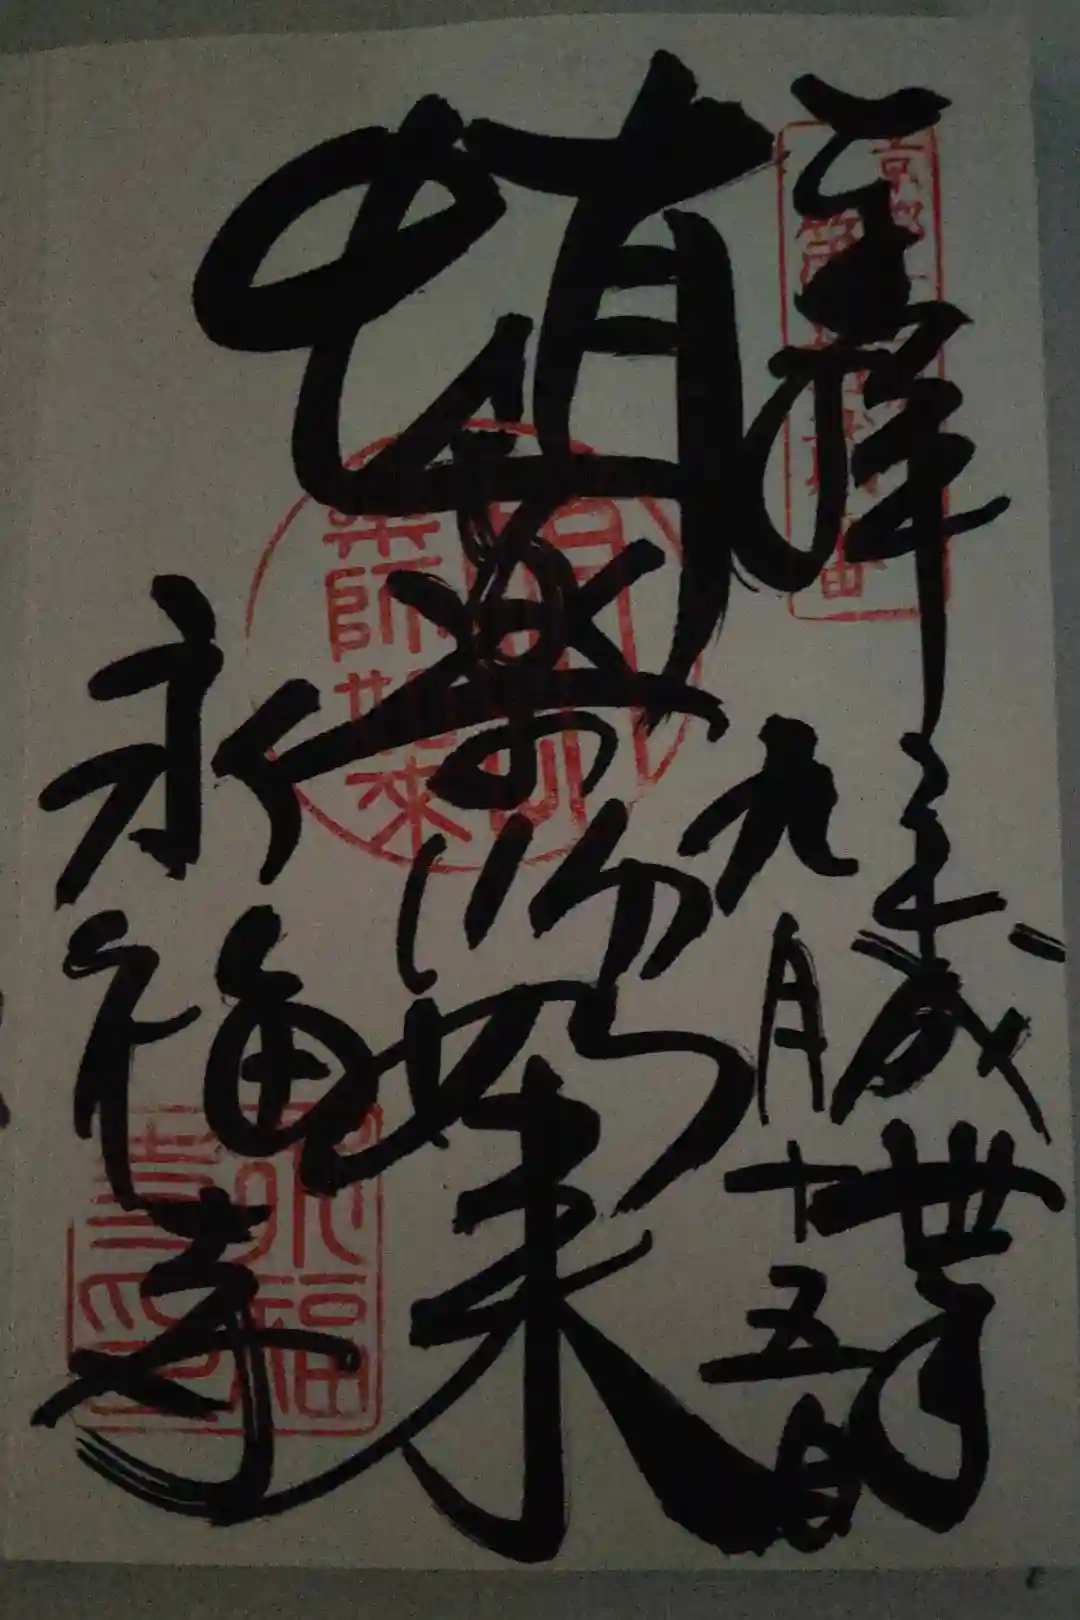 奉拝 平成丗年
九月十五日
蛸薬師如来
永福寺
薬師如来
永福寺印